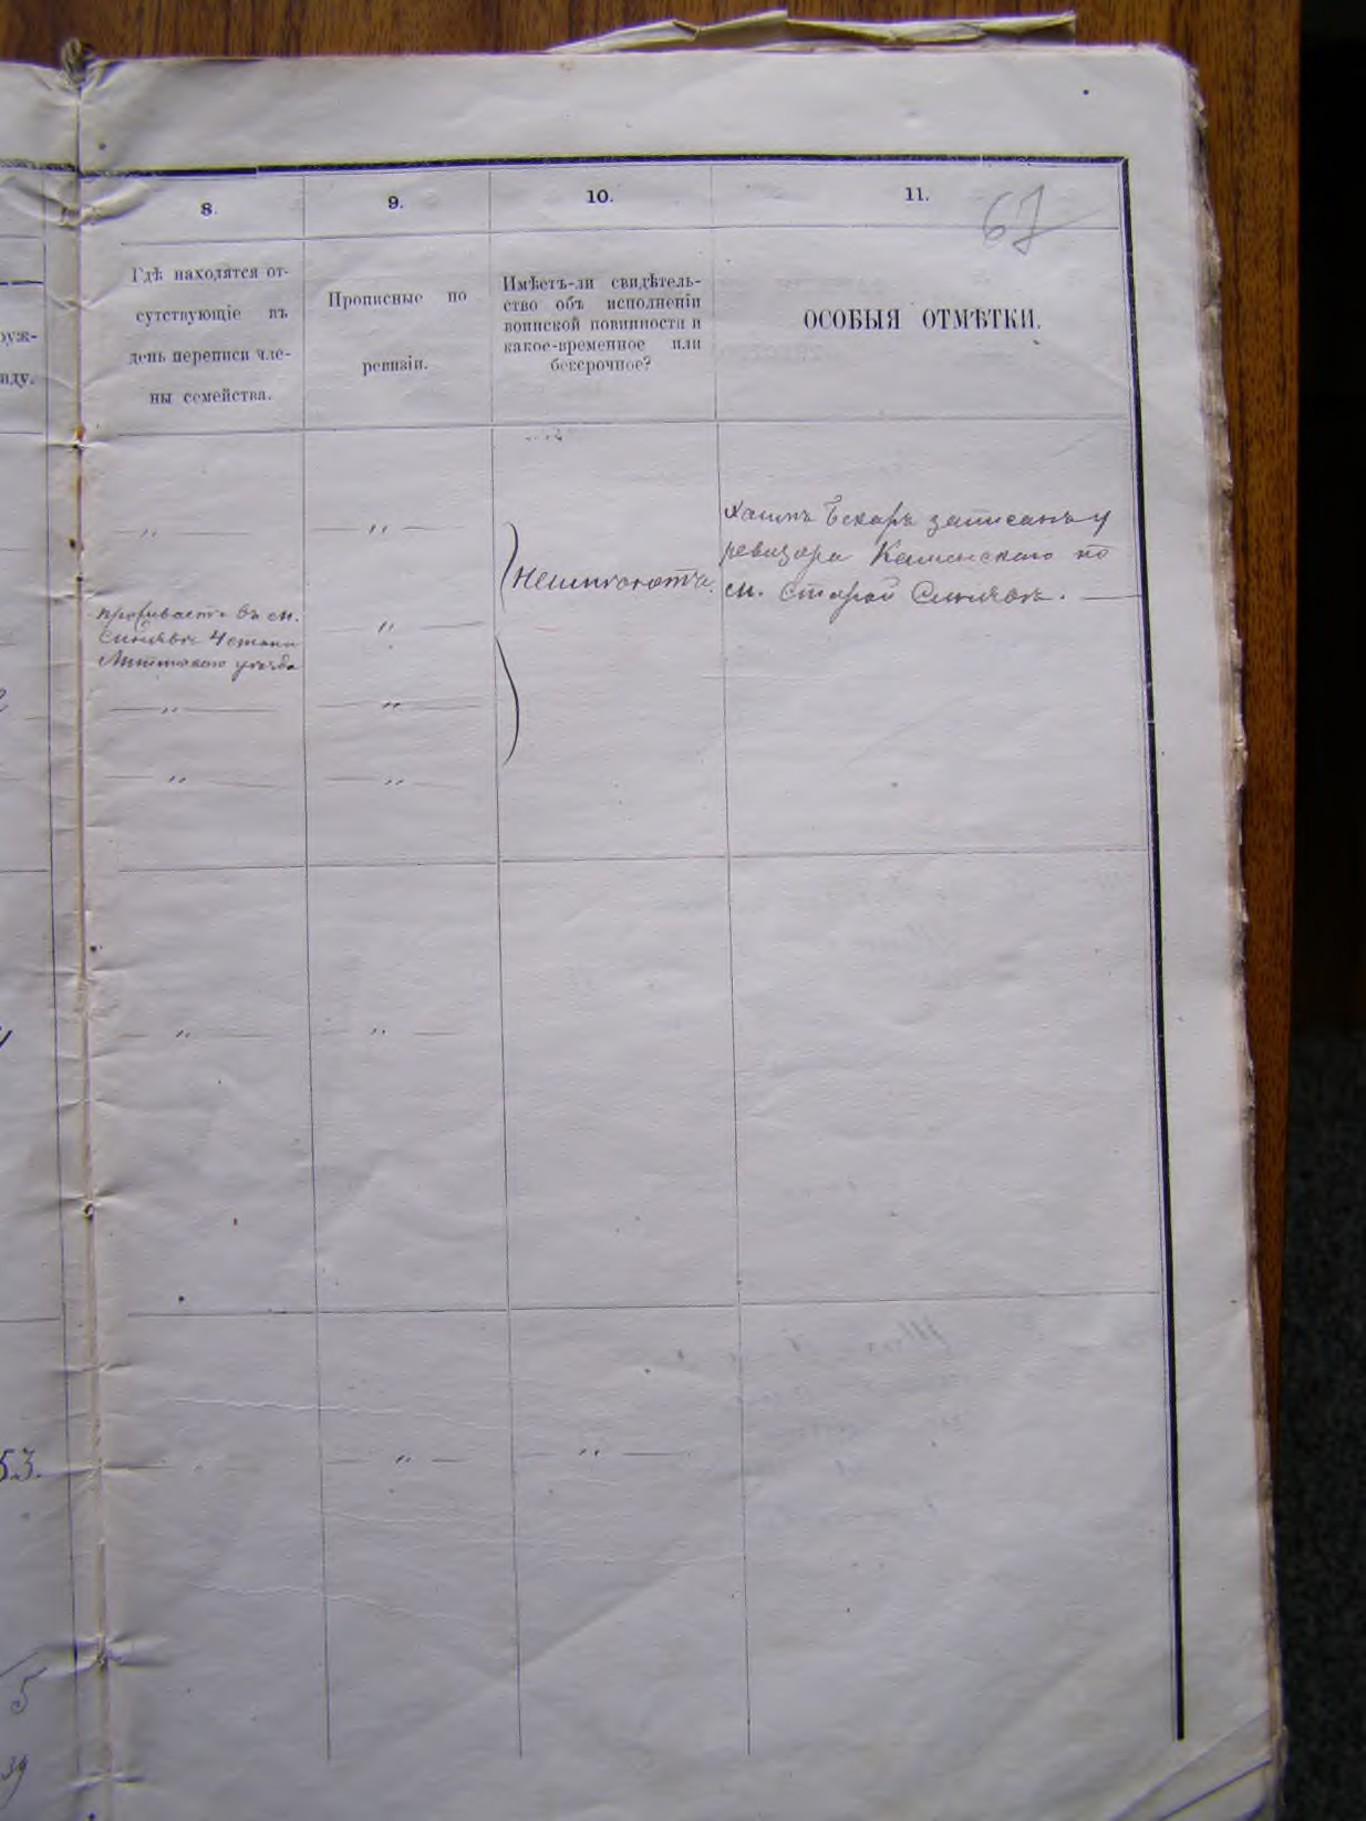 8.
9.
10.
11.
67
Гдѣ находятся от-
сутствующіе въ
день переписи чле-
ны семейства.
Прописные по
ревизіи.
Имѣетъ-ли свидѣтель-
ство объ исполненіи
воинской повинности и
какое-временное или
безсрочное?
ОСОБЫЯ ОТМѢТКИ.
руж-
иду.
— " —
— " —
неимѣютъ.
Хаимъ Бекаръ записанъ у
ревизора Каменскаго по
м. Старой Синявѣ. —
проживаетъ въ м.
Синявѣ 4 стана
Литинскаго уѣзда
— " —
— " —
— " —
— " —
— " —
— " —
— " —
53.
— " —
— " —
5
39